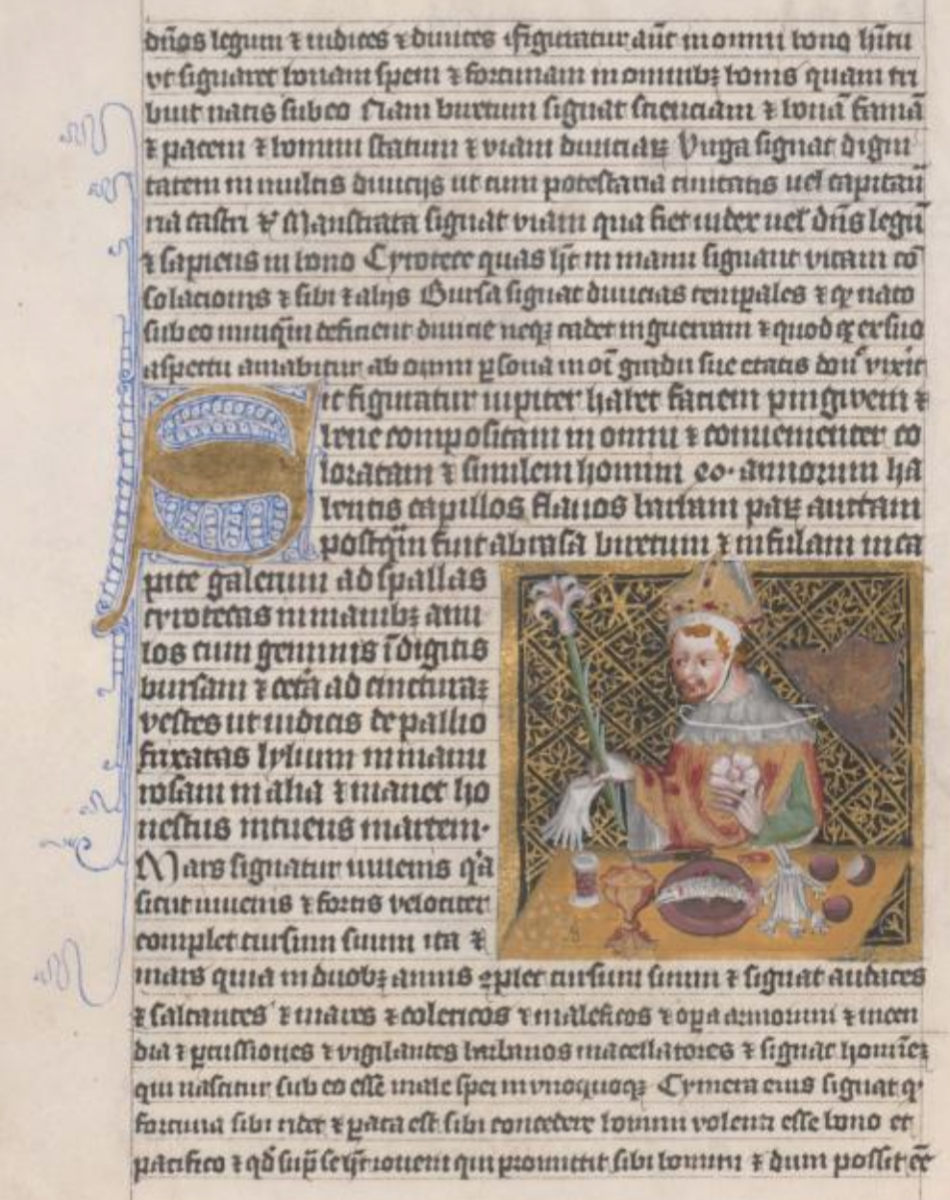 dn̄os legum ⁊ iudices ⁊ diuites ⁊figuratur aūt in omni bono h̄itu
ut signaret bonam spem ⁊ fortunam in omnibꝫ bonis quam tri
buit natis sub eo Nam biretum signat scienciam ⁊ bonā famā
⁊ pacem ⁊ bonum statum ⁊ viam diuiciaꝝ Virga signat digni
tatem in multis diuicijs ut cum potestaria ciuitatis uel capitan̄
ria castri ⁊ signat viam qua fiet iudex uel dn̄s legū
⁊ sapiens in bono Cyrotece quas h̄t in manu signant vitam cō
solacionis ⁊ sibi ⁊ alijs Bursa signat diuicias temꝑales ⁊ ꝙ nato
sub eo nunqm̄ deficient diuicie neqꝫ cadet in guerram ⁊ quod ꝙ ex suo
aspectu amabitur ab omni ꝑsona in oī gradu sue etatis donͨ vixit
Et figuratur iupiter habet faciem pingwem ⁊
bene compositam in omni ⁊ conuenienter co
loratam ⁊ similem homini 40· annorum ha
bentis capillos flauos barbam paꝝ auctam
postqm̄ fuit abrasa biretum ⁊ infulam in ca
pite galerum ad spallas
cyrotecas in manibꝫ anu
los cum gemmis ī digitis
bursam ⁊ cetā ad cincturaꝫ
vestes ut iudicis de pallio
foxatas lylium in manu
rosam in alia ⁊ manet ho
nestus intuens martem·
Mars signatur iuuenis qͣa
sicut iuuenis ⁊ fortis velociter
complet cursum suum ita ⁊
mars quia in duobꝫ annis ꝯplet cursum suum ⁊ signat audaces
⁊ saltantes ⁊ ⁊ colericos ⁊ maleficos ⁊ oꝑa armorum ⁊ incen
dia ⁊ ꝑcussiones ⁊ vigilantes barbanos macellatores ⁊ signat hominēꝫ
qui nascitur sub eo esse male spei in vnoquoqꝫ Cymera eius signat qͦ
fortuna sibi ridet ⁊ ꝑata est sibi concedere bonum volenti esse bono et
pacifico ⁊ qđ sup̄ se h̄t iouem qui promittit sibi bonum ⁊ dum possit eē